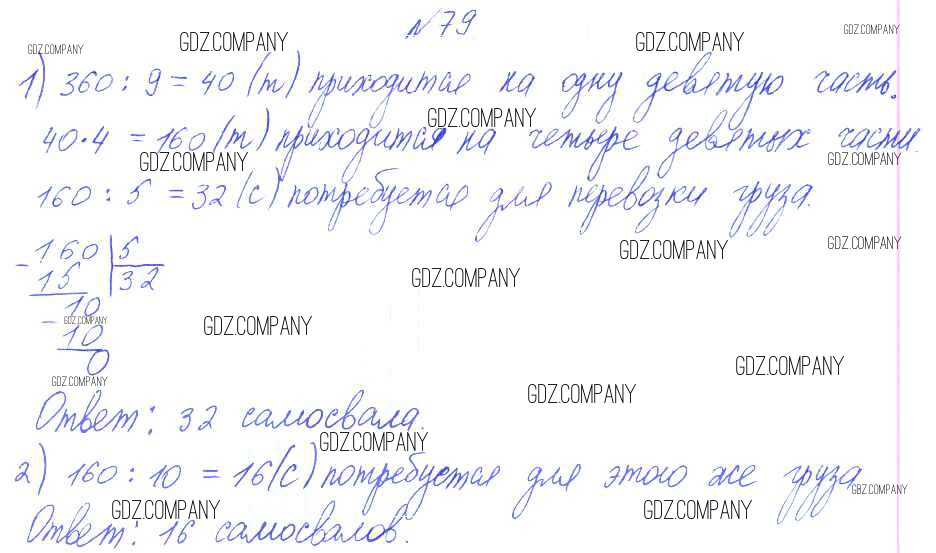 №79
GDZ.COMPANY GDZ.COMPANY GDZ.COMPANY GDZ.COMPANY
1) 360 : 9 = 40 (т) приходится на одну девятую часть.
GDZ.COMPANY
40·4 = 160 (т) приходится на четыре девятых части.
GDZ.COMPANY GDZ.COMPANY
160 : 5 = 32 (с) потребуется для перевозки груза.
GDZ.COMPANY GDZ.COMPANY
- 160 | 5
15 | 32
GDZ.COMPANY
10
- GDZ.COMPANY GDZ.COMPANY
10
0
GDZ.COMPANY
GDZ.COMPANY GDZ.COMPANY
Ответ: 32 самосвала.
GDZ.COMPANY
2) 160 : 10 = 16 (с) потребуется для этого же груза
GBZ.COMPANY
GDZ.COMPANY GDZ.COMPANY
Ответ: 16 самосвалов.